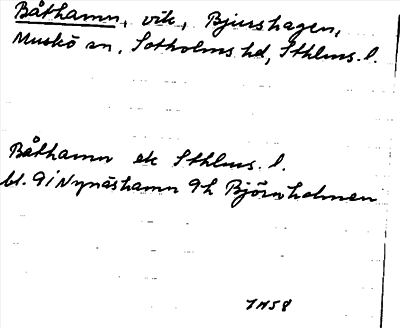 Båthamn, vik, Bjurshagen,
Muskö sn, Sotholms hd, Sthlms. l.
Båthamn ek Sthlms. l.
bl. 9i Nynäshamn 9h Björnholmen
1958